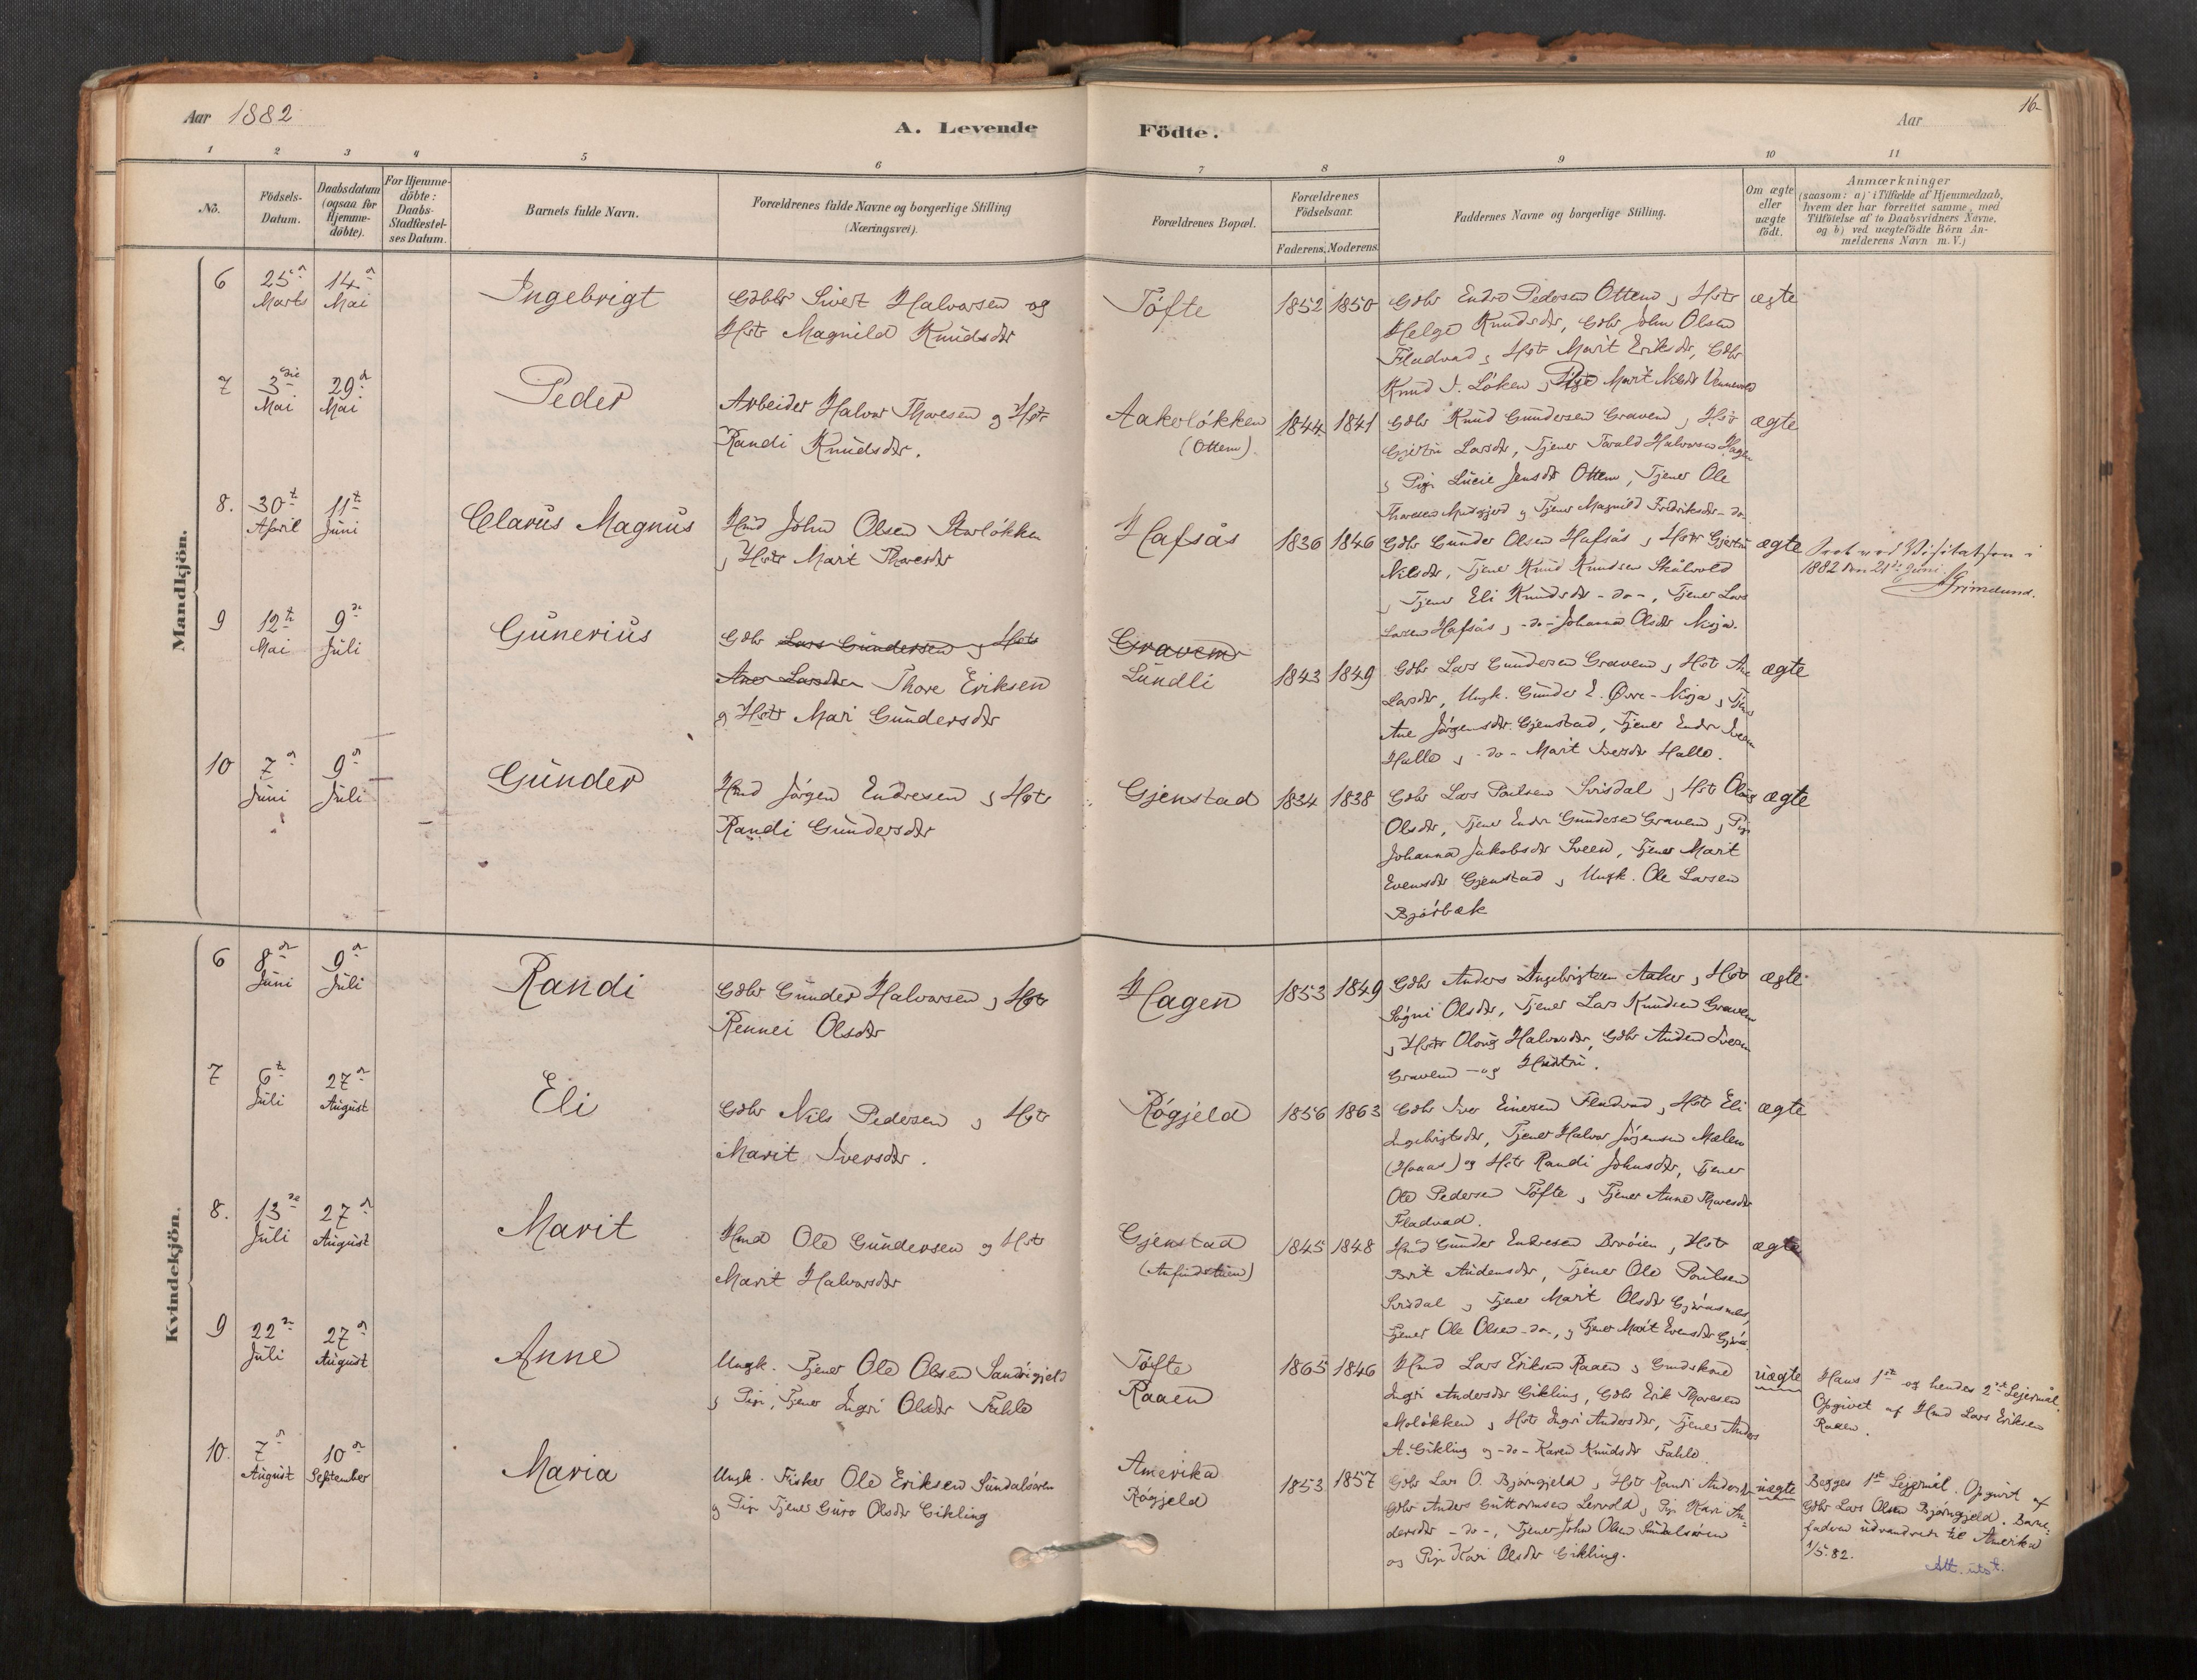 Aar 1882
A. Levende
Födte.
Aar
16
1
2
3
4
5
6
7
8
9
10
11
No.
Födsels-
Datum.
Daabsdatum
(ogsaa for
Hjemme-
döbte).
For Hjemme-
döbte:
Daabs-
Stadfæstel-
ses Datum.
Barnets fulde Navn.
Forældrenes fulde Navne og borgerlige Stilling
(Næringsvei).
Forældrenes Bopæl.
Forældrenes
Födselsaar.
Faderens. Moderens.
Faddernes Navne og borgerlige Stilling.
Om ægte
eller
uægte
födt.
Anmærkninger
(saasom: a) i Tilfælde af Hjemmedaab,
hvem der har forrettet samme, med
Tilföielse af to Daabsvidners Navne,
og b) ved uægtefödte Börn An-
melderens Navn m.V.)
Mandkjön.
6
25
Marts
14
Mai
Ingebrigt
Gdbr Sivert Halvorsen og
Hstr Magnild Knudsdtr
Töfte
1852 1850
Gdbr Endre Pedersen Ottem, Hstr
Helge Knudsdtr, Gdbr John Olsen
Fladvad, Hstr Marit Eriksdtr, Gdbr
Knud I. Löken, Pige Marit Nilsdtr
ægte
7
3die
Mai
29
Mai
Peder
Arbeider Halvor Thoresen og Hstr
Randi Knudsdtr.
Aakerlökken
(Ottem).
1844 1841
Gdbr Knud Gundersen Gravem, Hstr
Gjertru Larsdtr, Tjener Torald Halvorsen Hagen
Pige Lucie Jensdtr Ottem, Tjener Ole
Thoresen Musgjerd og Tjener Magnild Fredriksdtr -do-
ægte
8.
30t
April
11t
Juni
Clarus Magnus
Hmd John Olsen Storlökken
Hstr Marit Thoresdtr
Hafsås
1836 1846
Gdbr Gunder Olsen Hafsås, Hstr Gjertru
Nilsdtr, Tjener Knud Knudsen Skålvold
, Tjener Eli Knudsdtr -do-, Tjener Lars
Larsen Hafsås, -do- Johanna Olsdtr Nisja.
ægte
Seet ved Visitatsen i
1882 den 21de Juni.
Grimelund.
9
12t
Mai
9de
Juli
Gunerius
Gdbr Lars Gundersen og Hstr
Ane Larsdtr Thore Eriksen
og Hstr Mari Gundersdtr
Gravem
Lundli
1843 1849
Gdbr Lars Gundersen Gravem, Hstr Ane
Larsdtr, Ungk. Gunder E. Øvre-Nisja, Tjener
Ane Jörgensdtr Gjenstad, Tjener Endre Iversen
Halle, -do- Marit Iversdtr Halle.
ægte
10
7
Juni
9
Juli
Gunder
Hmd Jörgen Endresen, Hstr
Randi Gundersdtr
Gjenstad
1834 1838
Gdbr Lars Poulsen Svisdal, Hstr Olaug
Olsdtr, Tjener Endre Gundersen Gravem, Pige
Johanna Jakobsdtr Sveen, Tjener Marit
Evensdtr Gjenstad, Ungk. Ole Larsen
Bjørbæk
ægte
Kvindekjön.
6
8
Juni
9
Juli
Randi
Gdbr Gunder Halvorsen, Hstr
Rennei Olsdtr
Hagen
1853 1849
Gdbr Anders Ingebrigtsen Aaker, Hstr
Sögni Olsdtr, Tjener Lars Knudsen Gravem
, Hstr Olaug Halvorsdtr, Gdbr Anders Iversen
Gravem - og Hustru.
ægte
7
6t
Juli
27
August
Eli
Gdbr Nils Pedersen, Hstr
Marit Iversdtr.
Rögjeld
1856 1863
Gdbr Iver Einersen Fladvad, Hstr Eli
Ingebrigtsdtr, Tjener Halvor Jörgensen Mælen
(Haaas) og Hstr Randi Johnsdtr, Tjener
Ole Pedersen Töfte, Tjener Anne Thoresdtr
Fladvad.
ægte
8.
13
Juli
27
August
Marit
Hmd Ole Gundersen og Hstr
Marit Halvorsdtr
Gjenstad
1845 1848
Hmd Gunder Endresen Brøien, Hstr
Brit Audensdtr, Tjener Ole Poulsen
Svisdal, Tjener Marit Olsdtr
Tjener Ole Olsen -do-, og Tjener Marit Evensdtr
ægte
9
22
Juli
27
August
Anne
Ungk. Tjener Ole Olsen Sandrigjeld
, Pige, Tjener Ingri Olsdtr Fahle
Töfte
Raaen
1865 1846
Hmd Lars Eriksen Raaen, Gmdskone
Ingri Andersdtr Gikling, Gdbr Erik Thoresen
Molökken, Hstr Ingri Andersdtr, Tjener Anders
A. Gikling og -do- Karen Knudsdtr Fahle.
uægte
Hans 1ste og hendes 2det Lejermål.
Opgivet af Hmd Lars Eriksen
Raaen.
10.
7
August
10
September
Maria
Ungk. Fisker Ole Eriksen Sundalsören
og Pige Tjener Guro Olsdtr Gikling
Amerika
Rögjeld
1853 1857
Gdbr Lars O. Bjørngjeld, Hstr Randi Andersdtr
Gdbr Anders Guttormsen Lervold, Pige Kari An-
dersdtr -do-, Tjener John Olsen Sundalsören
og Pige Kari Olsdtr Gikling.
uægte
Begges 1ste Lejermål. Opgivet af
Gdbr Lars Olsen Bjørngjeld. Barne-
faderen udvandrede til Amerika
1/5.82.
Att. utst.